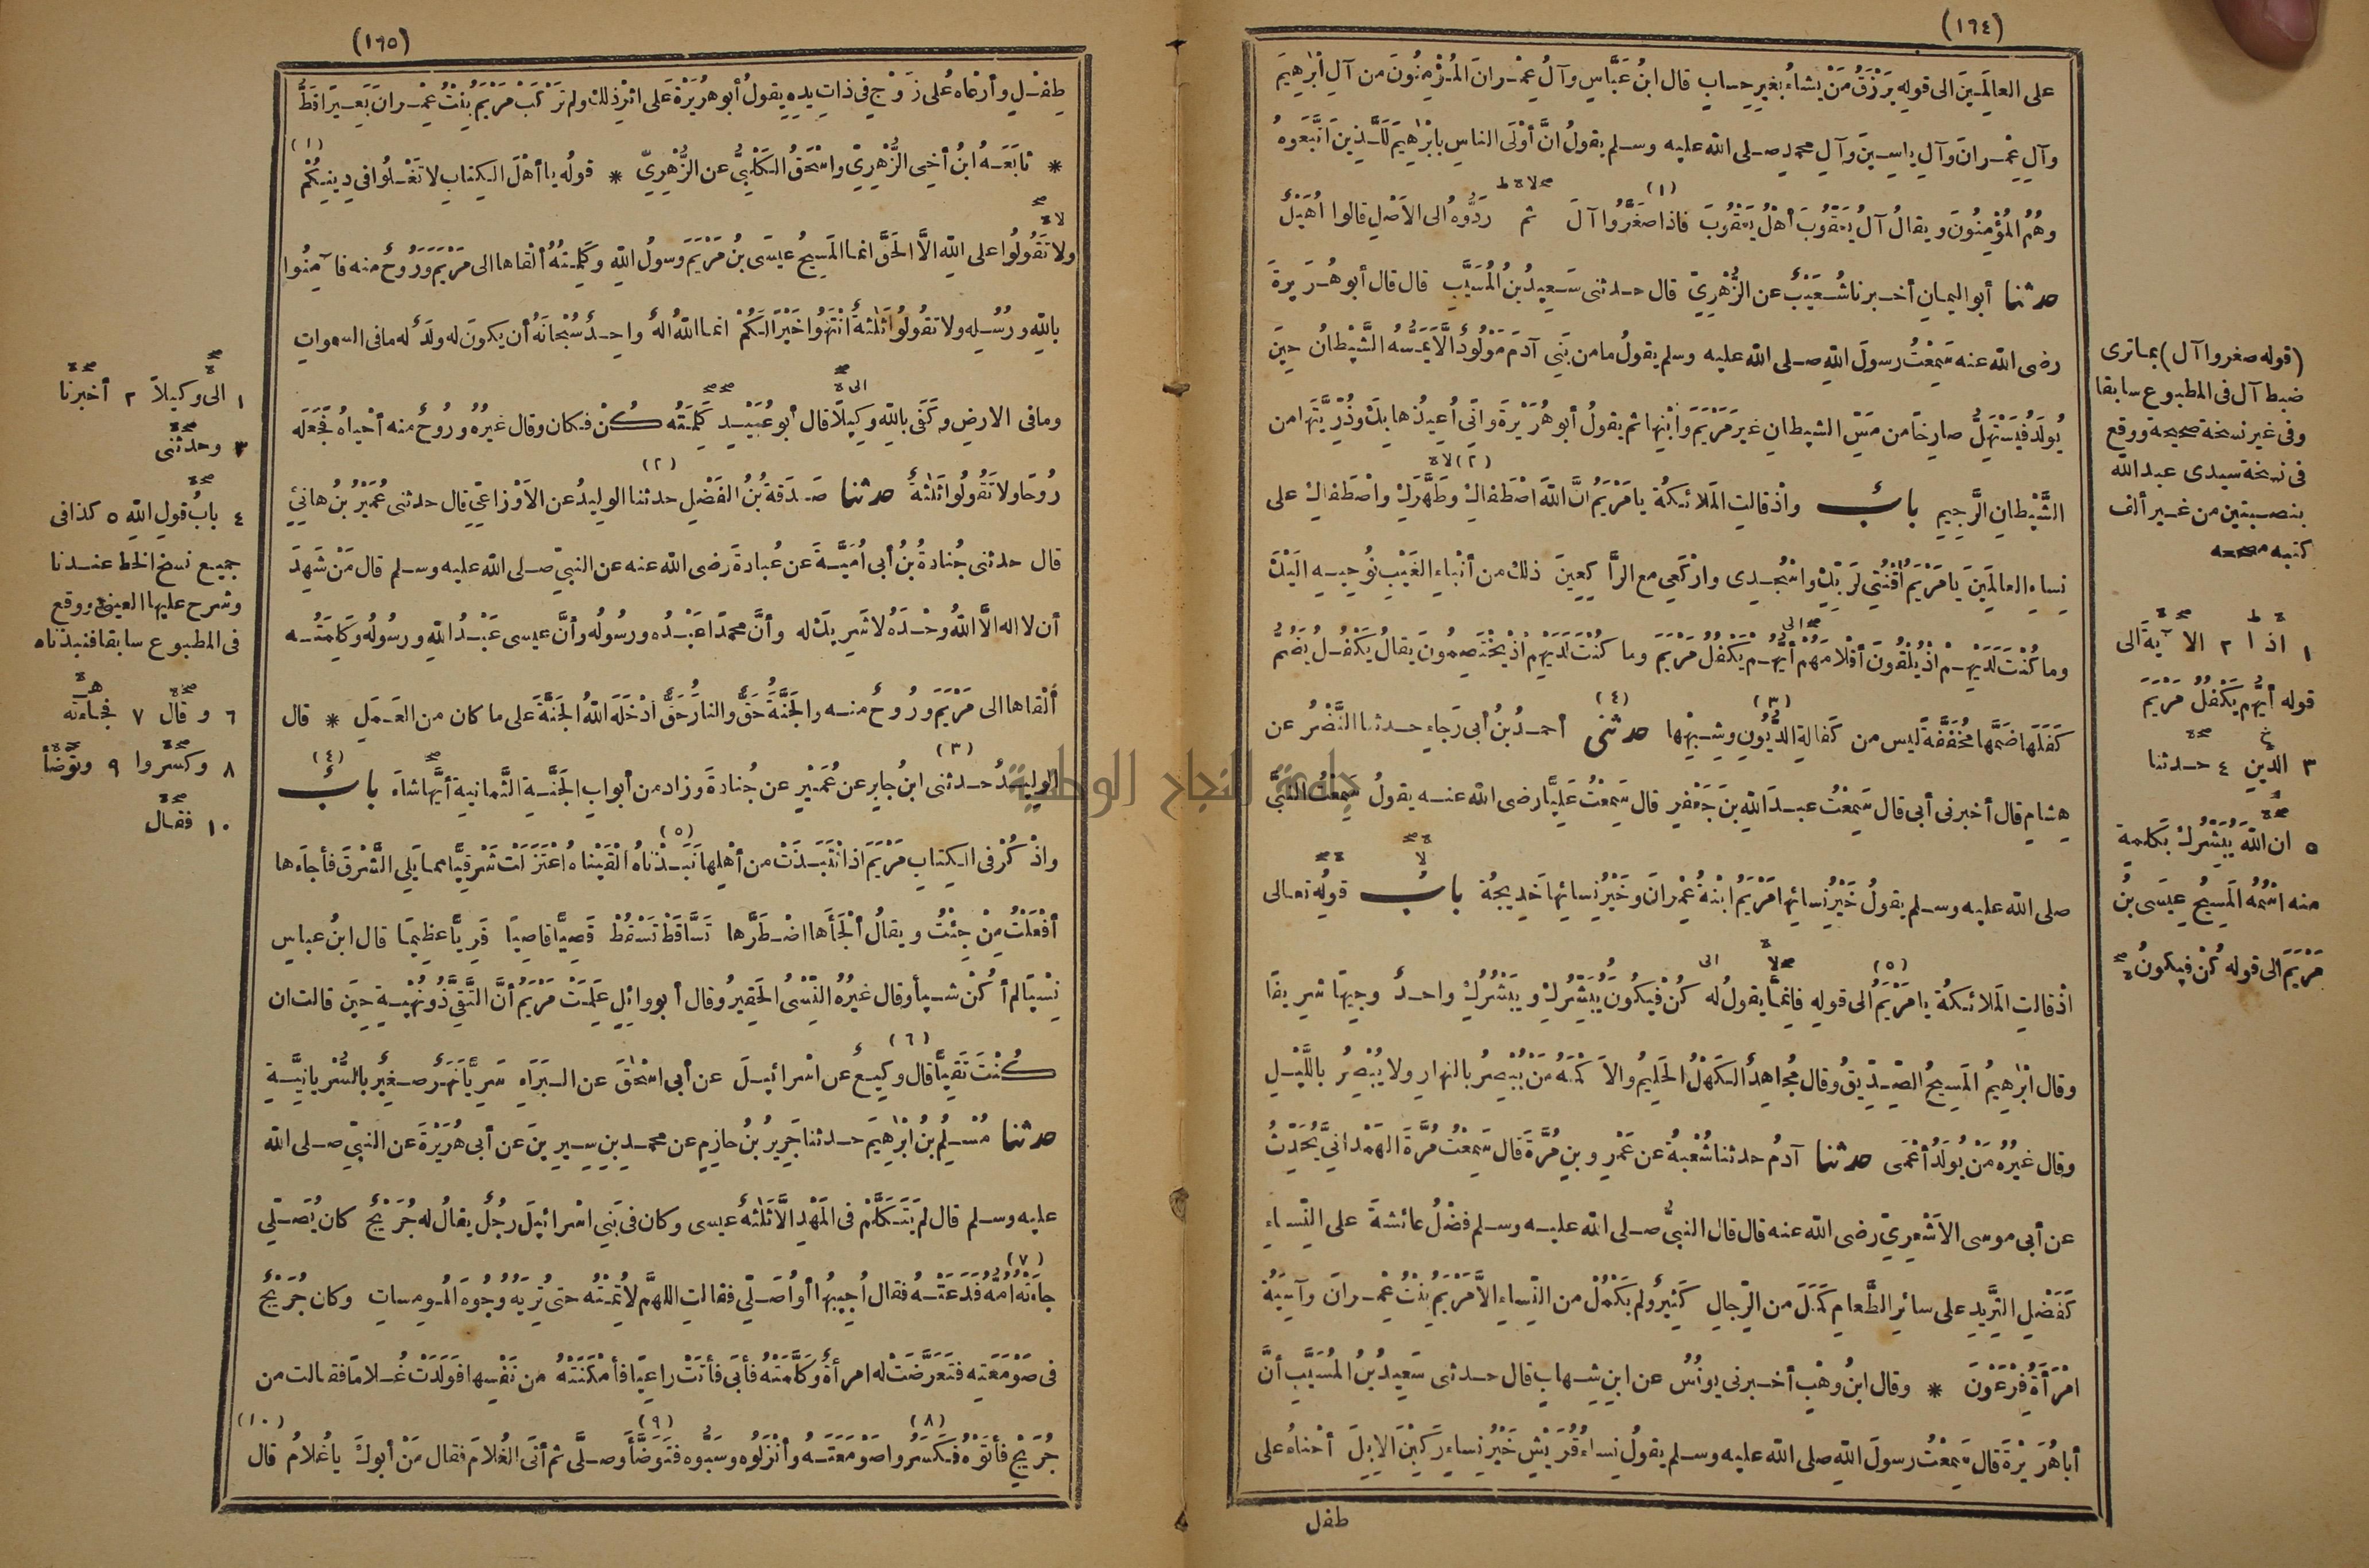 (١٦٤)
على العالَمِينَ الى قوله يَرْزُقُ مَنْ يشاءُ بغيرِ حسابٍ قال ابنُ عَبَّاسٍ وآلُ عِمْرانَ المُؤْمِنُونَ من آلِ ابْرٰهِيمَ
وآلِ عِمْرانَ وآلِ ياسِينَ وآلِ محمدٍ صلى الله عليه وسلم يقولُ انَّ أوْلَى الناسِ بابْرٰهِيمَ لَلَّذِينَ اتَّبَعُوهُ
وهُمُ المُؤْمِنُونَ ويقالُ آلُ يَعْقُوبَ أهْلُ يَعْقُوبَ فاذا صَغَّرُوا آلَ ثم رَدُّوهُ الى الأصْلِ قالوا أُهَيْلٌ
حدثنا أبو اليمانِ أخبرنا شُعَيْبٌ عن الزُّهْرِيِّ قال حدثنى سَعِيدُ بنُ المُسَيَّبِ قال قال أبو هُرَيرةَ
رضى الله عنه سَمِعْتُ رسولَ اللهِ صلى الله عليه وسلم يقولُ ما من بَنِي آدمَ مَوْلُودٌ الَّا يَمَسُّهُ الشَّيْطانُ حِينَ
يُولَدُ فيَسْتَهِلُّ صارِخًا من مَسِّ الشيطانِ غيرَ مَرْيَمَ وابْنِها ثم يقولُ أبو هُرَيْرةَ وانِّي أُعِيذُها بِكَ وذُرِّيَّتَها من
الشَّيْطانِ الرَّجِيمِ بابٌ واذْ قالتِ المَلائِكةُ يا مَرْيَمُ انَّ اللهَ اصْطَفاكِ وطَهَّرَكِ واصْطَفاكِ على
نِساءِ العالَمِينَ يا مَرْيَمُ اقْنُتِي لِرَبِّكِ واسْجُدِى وارْكَعِي مع الرَّاكِعِينَ ذلك من أنْباءِ الغَيْبِ نُوحِيهِ الَيْكَ
وما كُنْتَ لَدَيْهِمْ اذْ يُلْقُونَ أقْلامَهُمْ أيُّهُمْ يَكْفُلُ مَرْيَمَ وما كُنْتَ لَدَيْهِمْ اذْ يَخْتَصِمُونَ يقالُ يَكْفُلُ يَضُمُّ
كَفَلَها ضَمَّها مُخَفَّفةً ليس من كَفالةِ الدُّيُونِ وشِبْهِها حدثنى أحمدُ بنُ أبى رَجاءٍ حدثنا النَّضْرُ عن
هِشامٍ قال أخبرنى أبى قال سَمِعْتُ عبدَ اللهِ بنَ جَعْفَرٍ قال سَمِعْتُ عَلِيًّا رضى الله عنه يقولُ سَمِعْتُ النبيَّ
صلى الله عليه وسلم يقولُ خَيْرُ نِسائِها مَرْيَمُ ابْنةُ عِمْرانَ وخَيْرُ نِسائِها خَدِيجةُ بابُ قولِهِ تعالى
اذْ قالتِ المَلائكةُ يا مَرْيَمُ الى قولِهِ فانَّما يقولُ له كُنْ فَيَكُونُ يُبَشِّرُكِ ويَبْشُرُكِ واحدٌ وجِيهًا شَرِيفًا
وقال ابْرٰهِيمُ المَسِيحُ الصِّدِّيقُ وقال مُجاهِدٌ الكَهْلُ الحَلِيمُ والأكْمَهُ مَنْ يُبْصِرُ بالنهارِ ولا يُبْصِرُ باللَّيْلِ
وقال غيرُهُ مَنْ يُولَدُ أعْمَى حدثنا آدمُ حدثنا شُعْبةُ عن عَمْرِو بنِ مُرَّةَ قال سَمِعْتُ مُرَّةَ الهَمْدانِيَّ يُحَدِّثُ
عن أبى موسى الأشْعَرِيِّ رضى الله عنه قال قال النبيُّ صلى الله عليه وسلم فَضْلُ عائشةَ على النِّساءِ
كَفَضْلِ الثَّرِيدِ على سائِرِ الطَّعامِ كَمَلَ من الرِّجالِ كَثِيرٌ ولم يَكْمُلْ من النِّساءِ الَّا مَرْيَمُ بِنْتُ عِمْرانَ وآسِيَةُ
امْرَأةُ فِرْعَوْنَ * وقال ابنُ وهْبٍ أخبرنى يونُسُ عن ابنِ شِهابٍ قال حدثنى سَعِيدُ بنُ المُسَيَّبِ أنَّ
أبا هُرَيْرةَ قال سَمِعْتُ رسولَ اللهِ صلى الله عليه وسلم يقولُ نِساءُ قُرَيْشٍ خَيْرُ نِساءٍ رَكِبْنَ الابِلَ أحْناهُ على
طفل
(قوله صغروا آل) بما ترى
ضبط آل فى المطبوع سابقا
وفى غير نسخة صحيحة ووقع
فى نسخة سيدى عبد الله
بنصبتين من غير ألف
كتبه مصححه
١ اذا ٢ الآيةَ الى
قوله أيُّهُم يَكْفُلُ مَرْيَمَ
٣ الدَّينِ ٤ حدثنا
٥ ان اللهَ يُبَشِّرُكِ بكلمةٍ
منه اسْمُهُ المَسِيحُ عِيسَى بنُ
مَرْيَمَ الى قوله كُنْ فيكونُ
(١٦٥)
طِفْلٍ وأرْعاهُ على زَوْجٍ فى ذاتِ يدِهِ يقولُ أبو هُرَيْرةَ على اثْرِ ذلك ولم تَرْكَبْ مَرْيَمُ بِنْتُ عِمْرانَ بَعِيرًا قَطُّ
* تابَعَهُ ابنُ أخِي الزُّهْرِيِّ واسْحٰقُ الكَلْبِيُّ عن الزُّهْرِيِّ * قولُه يا أهْلَ الكِتابِ لا تَغْلُوا فى دِينِكُمْ
ولا تَقُولُوا على اللهِ الَّا الحَقَّ انما المَسِيحُ عِيسَى بنُ مَرْيَمَ رسولُ اللهِ وكَلِمَتُهُ ألْقاها الى مَرْيَمَ ورُوحٌ منه فآمِنُوا
باللهِ ورُسُلِهِ ولا تَقُولُوا ثَلٰثةٌ انْتَهُوا خَيْرًا لَكُمْ انما اللهُ الٰهٌ واحِدٌ سُبْحانَهُ أن يكونَ له ولَدٌ له ما فى السموات
وما فى الارضِ وكَفَى باللهِ وكِيلًا قال أبو عُبَيْدٍ كَلِمَتُه كُنْ فكان وقال غيرُهُ ورُوحٌ منه أحْياهُ فَجَعَلَه
رُوحًا ولا تَقُولُوا ثَلٰثةٌ حدثنا صَدَقةُ بنُ الفَضْلِ حدثنا الولِيدُ عن الأوْزاعِيِّ قال حدثنى عُمَيْرُ بنُ هانِئٍ
قال حدثنى جُنادةُ بنُ أبى أُمَيَّةَ عن عُبادةَ رضى الله عنه عن النبيِّ صلى الله عليه وسلم قال مَنْ شَهِدَ
أن لا اله الَّا اللهُ وحْدَهُ لا شَرِيكَ له وأنَّ محمدًا عَبْدُه ورسُولُه وأنَّ عيسى عَبْدُ اللهِ ورسُولُه وكَلِمَتُه
ألْقاها الى مَرْيَمَ ورُوحٌ منه والجَنَّةُ حَقٌّ والنارُ حَقٌّ أدْخَلَه اللهُ الجَنَّةَ على ما كان من العَمَلِ * قال
الولِيدُ حدثنى ابنُ جابِرٍ عن عُمَيْرٍ عن جُنادةَ وزاد من أبوابِ الجَنَّةِ الثَّمانيةِ أيَّها شاءَ بابٌ
واذْكُرْ فى الكِتابِ مَرْيَمَ اذِ انْتَبَذَتْ من أهْلِها نَبَذْناهُ ألْقَيْناهُ اعْتَزَلَتْ شَرْقِيًّا مما يَلِي الشَّرْقَ فأجاءَها
أفْعَلْتُ مِنْ جِئْتُ ويقالُ ألْجَأها اضْطَرَّها تَسَّاقَطْ تَسْقُطْ قَصِيًّا قاصِيًا فَرِيًّا عظِيمًا قال ابنُ عباسٍ
نِسْيًا لم أكُنْ شيأ وقال غيرُهُ النِّسْىُ الحَقِيرُ وقال أبو وائِلٍ عَلِمَتْ مَرْيَمُ أنَّ التَّقِيَّ ذُو نُهْيةٍ حِينَ قالت ان
كُنْتَ تَقِيًّا قال وكِيعٌ عن اسْرائِيلَ عن أبى اسْحٰقَ عن البَرَاءِ سَرِيًّا نَهَرٌ صغِيرٌ بالسُّرْيانِيَّةِ
حدثنا مُسْلِمُ بنُ ابْرٰهِيمَ حدثنا جَرِيرُ بنُ حازِمٍ عن محمدِ بنِ سِيرِينَ عن أبى هُرَيْرةَ عن النبيِّ صلى الله
عليه وسلم قال لم يَتَكَلَّمْ فى المَهْدِ الَّا ثَلٰثةٌ عيسى وكان فى بَنِي اسْرائِيلَ رَجُلٌ يقالُ له جُرَيْجٌ كان يُصَلِّى
جاءَتْهُ أُمُّهُ فَدَعَتْهُ فقال أُجِيبُها أو أُصَلِّي فقالتِ اللهمَّ لا تُمِتْهُ حتى تُرِيَهُ وُجُوهَ المُومِساتِ وكان جُرَيْجٌ
فى صَوْمَعَتِهِ فتَعَرَّضَتْ له امرأةٌ وكَلَّمَتْهُ فأبَى فأتَتْ راعِيًا فأمْكَنَتْهُ من نَفْسِها فَوَلَدَتْ غُلامًا فقالت من
جُرَيْجٍ فأتَوْهُ فكَسَرُوا صَوْمَعَتَهُ وأنْزَلُوه وسَبُّوه فتَوَضَّأَ وصَلَّى ثم أتَى الغُلامَ فقال مَنْ أبوكَ يا غُلامُ قال
١ الى وكيلًا ٢ أخبرنا
٣ وحدثنى
٤ بابُ قولِ اللهِ ٥ كذا فى
جميع نسخ الخط عندنا
وشرح عليها العينى ووقع
فى المطبوع سابقا فنبذناه
٦ وقال ٧ فجاءته
٨ وكسروا ٩ وتوضأ
١٠ فقال
جامعة النجاح الوطنية